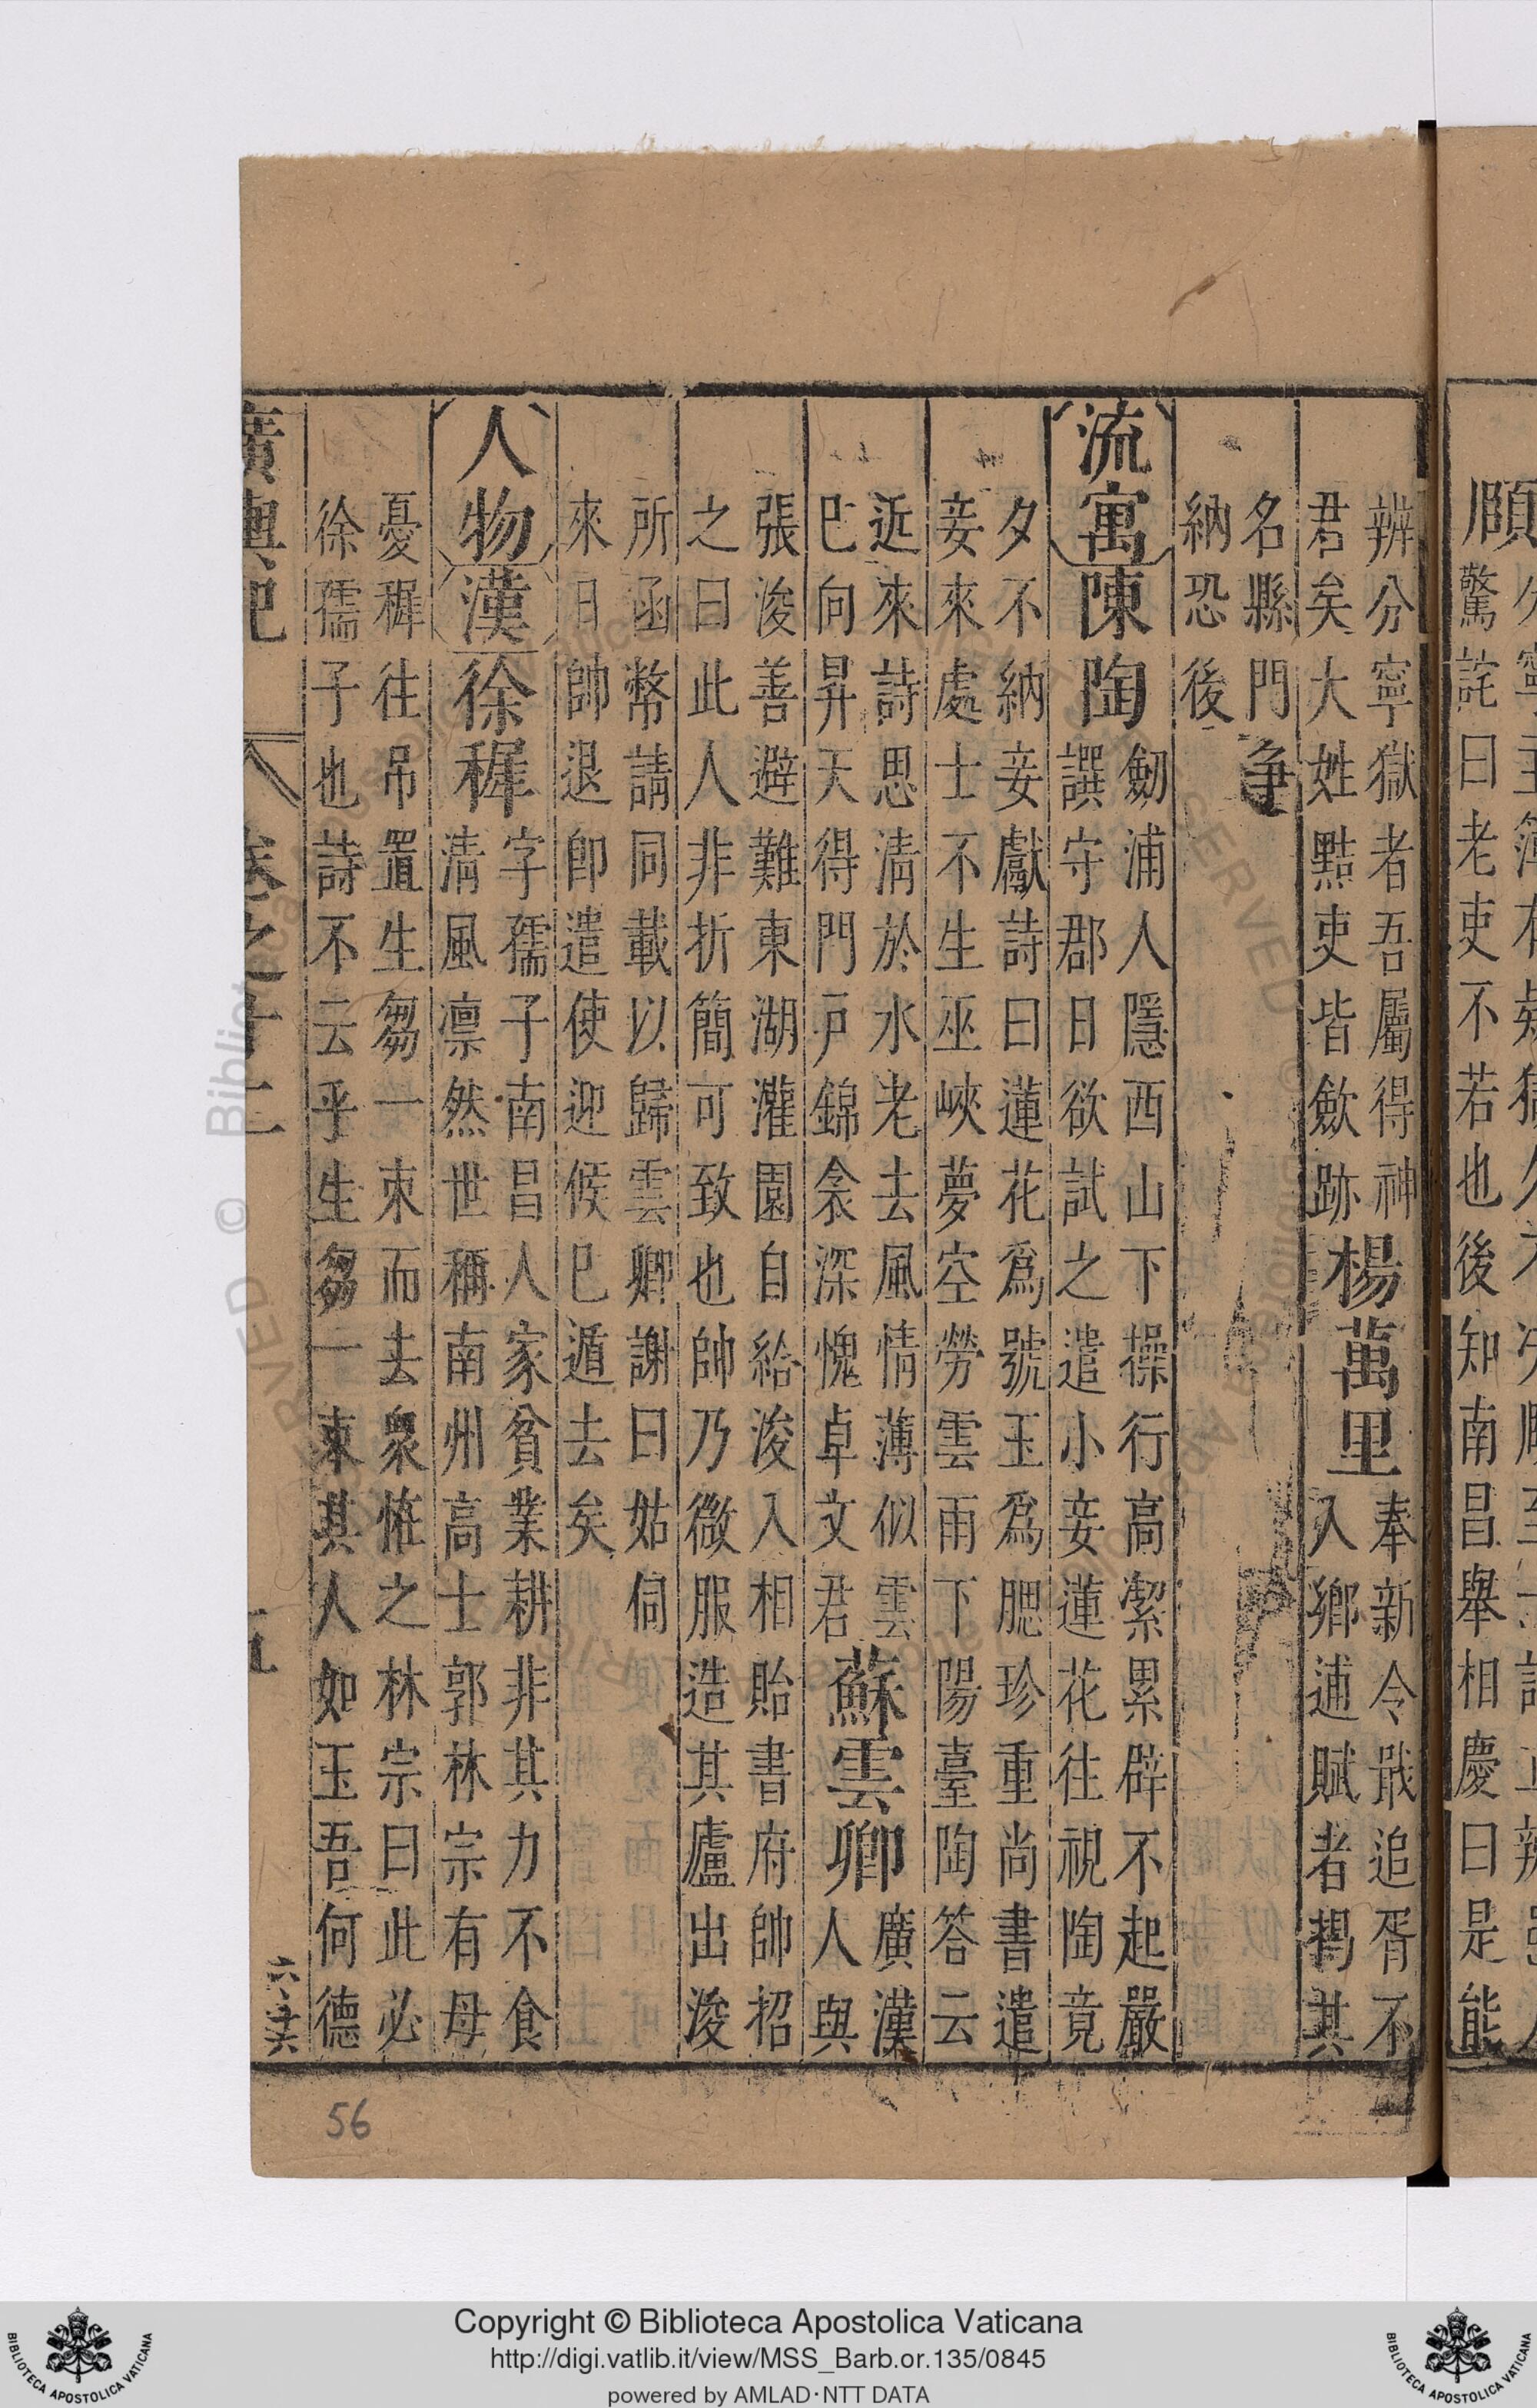 頥
驚詫曰老吏不若也後知南昌舉相慶曰是能
辨分寧獄者吾屬得神
君矣大姓黠吏皆斂跡
楊萬里
奉新令戢追胥不
入鄉逋賦者揭其
名縣門争
納恐後
流寓
陳陶
劒浦人隱西山下操行高潔累辟不起嚴
譔守郡日欲試之遣小妾蓮花往視陶竟
夕不納妾獻詩曰蓮花爲號玉爲腮珍重尚書遣
妾來處士不生巫峽夢空勞雲雨下陽臺陶答云
近來詩思清於水老去風情薄似雲
巳向昇天得門戸錦衾深愧卓文君
蘇雲卿
廣漢
人與
張浚善避難東湖灌園自給浚入相貽書府帥招
之曰此人非折簡可致也帥乃微服造其廬出浚
所函幣請同載以歸雲卿謝曰姑伺
來日帥退卽遣使迎候巳遁去矣
人物
漢
徐穉
字孺子南昌人家貧業耕非其力不食
清風凛然世稱南州高士郭林宗有母
憂穉往吊置生芻一束而去衆恠之林宗曰此必
徐孺子也詩不云乎生芻一束其人如玉吾何德
廣輿記 卷之十二 五
56
Copyright © Biblioteca Apostolica Vaticana
http://digi.vatlib.it/view/MSS_Barb.or.135/0845
powered by AMLAD·NTT DATA